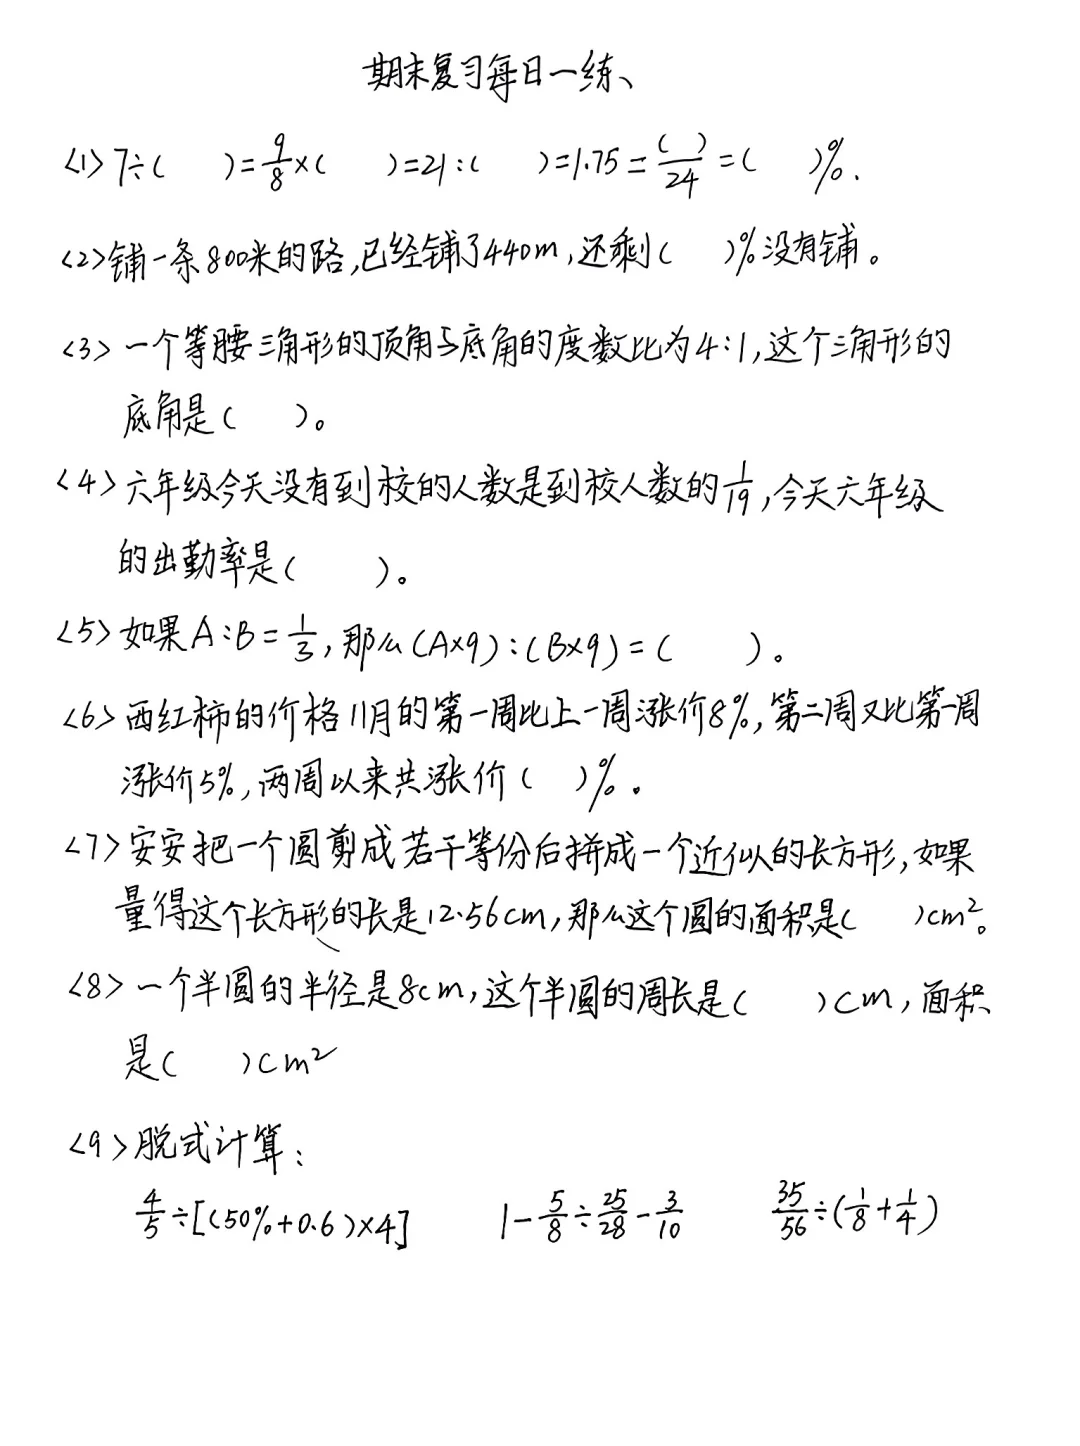 期末复习每日一练、
<1> 7÷(    )=9/8×(    )=21:(    )=1.75=(  )/24=(    )%.
<2>铺一条800米的路,已经铺了440m,还剩(    )%没有铺。
<3>一个等腰三角形的顶角与底角的度数比为4:1,这个三角形的
底角是(    )。
<4>六年级今天没有到校的人数是到校人数的1/19,今天六年级
的出勤率是(    )。
<5>如果A:B=1/3,那么(A×9):(B×9)=(    )。
<6>西红柿的价格11月的第一周比上一周涨价8%,第二周又比第一周
涨价5%,两周以来共涨价(    )%。
<7>安安把一个圆剪成若干等份后拼成一个近似的长方形,如果
量得这个长方形的长是12.56cm,那么这个圆的面积是(    )cm²。
<8>一个半圆的半径是8cm,这个半圆的周长是(    )cm,面积
是(    )cm²
<9>脱式计算:
4/5÷[(50%+0.6)×4]    1-5/8÷25/28-3/10    35/56÷(1/8+1/4)